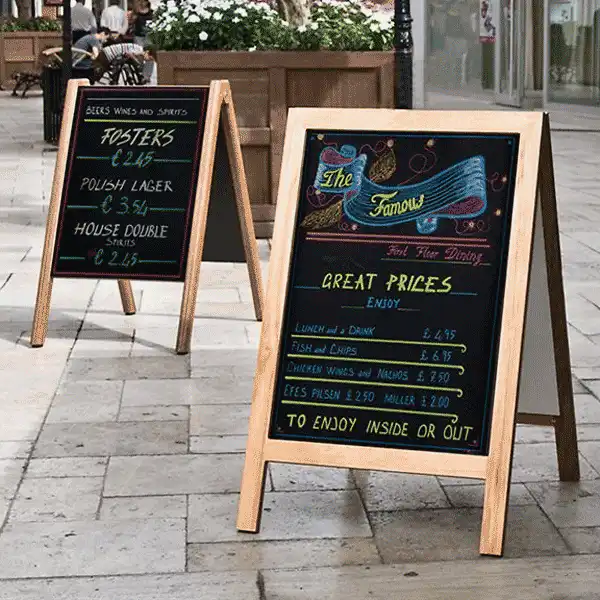 BEERS WINES AND SPIRITS
FOSTERS
€ 2.45
POLISH LAGER
€ 3.54
HOUSE DOUBLE
SPIRITS
€ 2.45
The
Famous
First Floor Dining
GREAT PRICES
ENJOY
LUNCH and a DRINK £ 4,95
FISH and CHIPS £ 6.95
CHICKEN WINGS and NACHOS £ 7.50
EFES PILSEN £ 2.50 MILLER £ 2.00
TO ENJOY INSIDE OR OUT